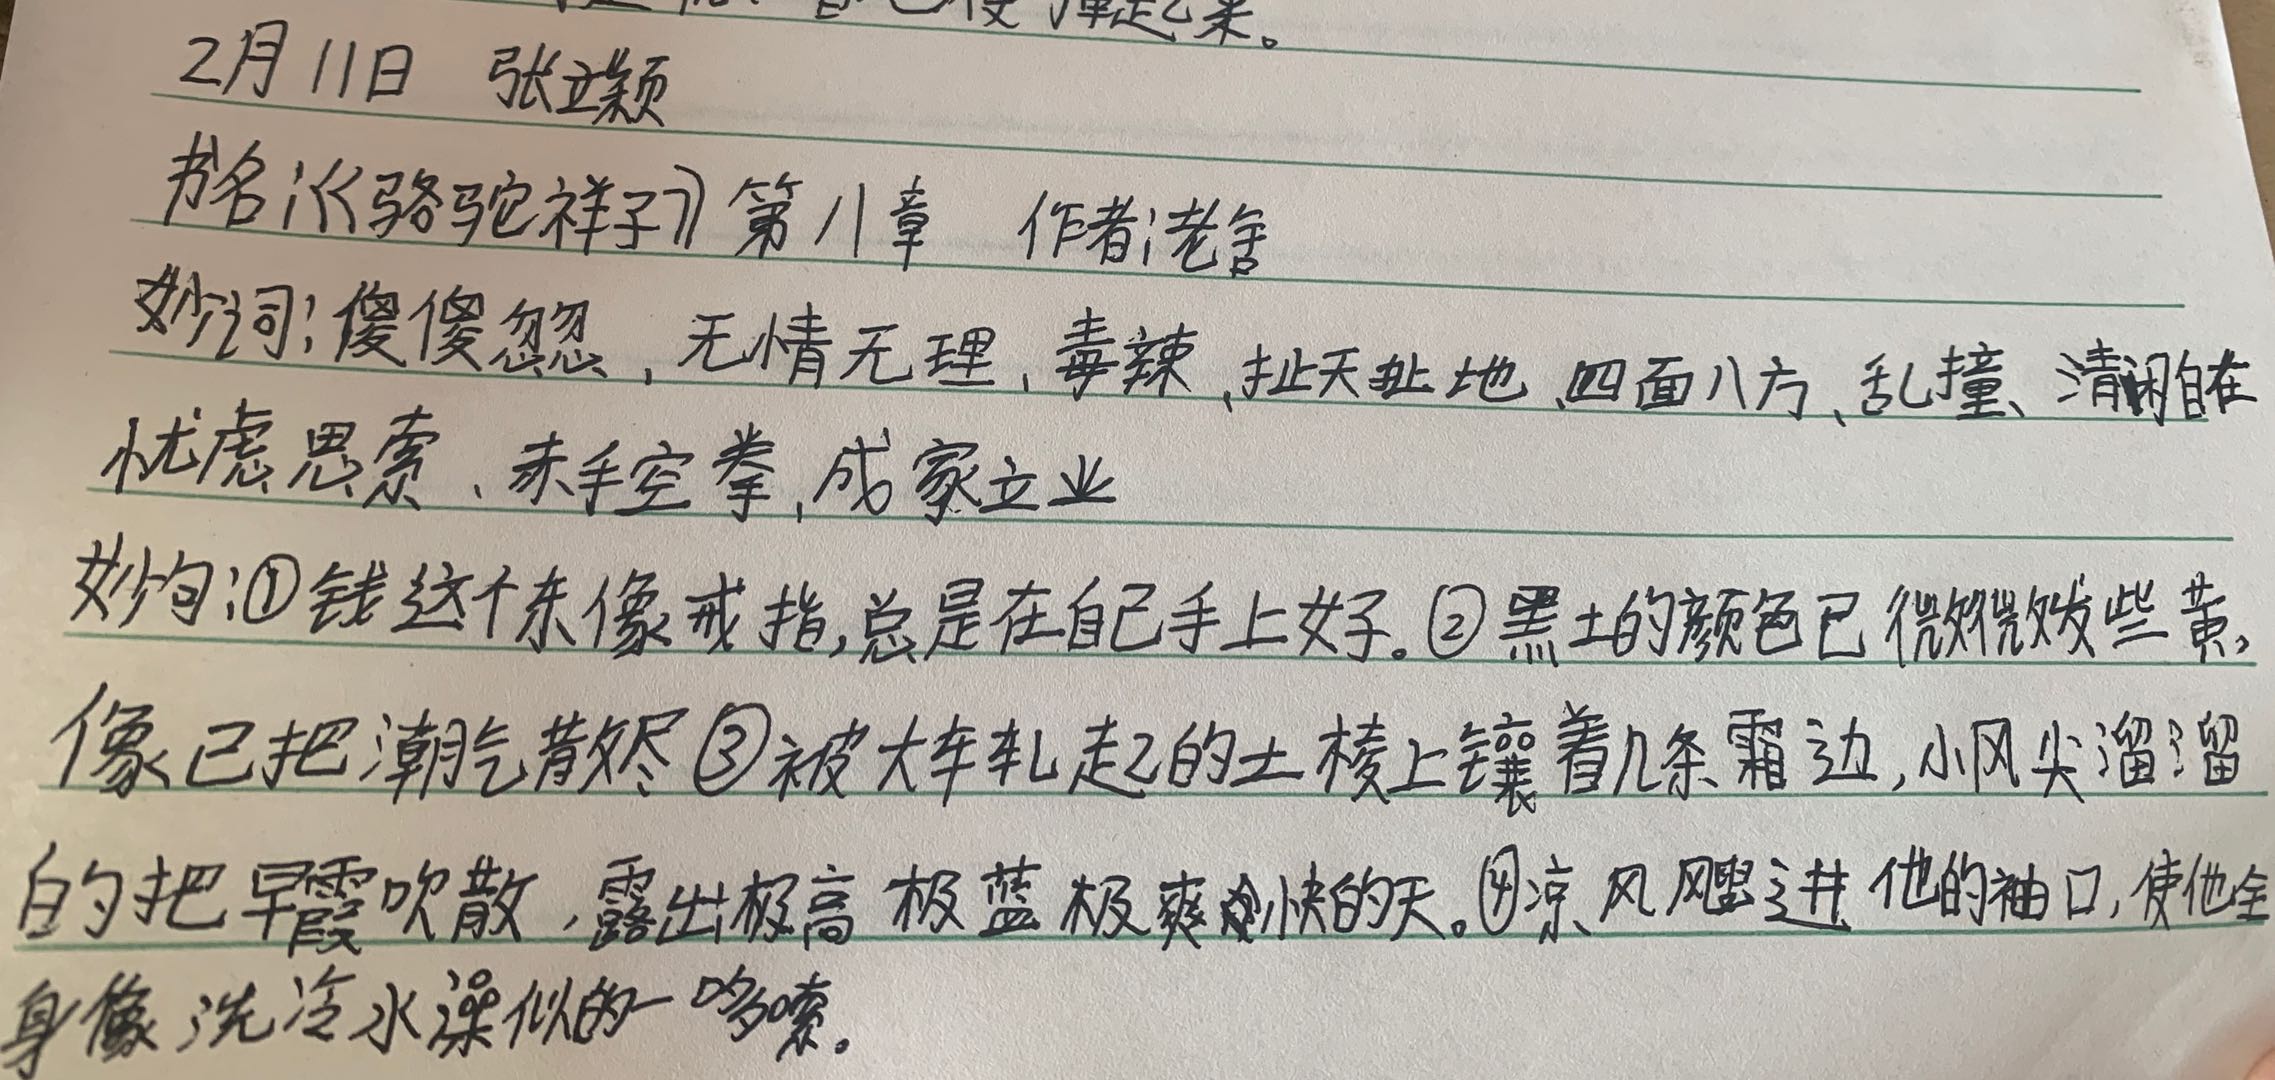 便弹起来。
2月11日 张立颖
书名:《骆驼祥子》第八章 作者:老舍
妙词:傻傻忽忽,无情无理、毒辣、扯天扯地、四面八方、乱撞、清闲自在
忧虑思索、赤手空拳,成家立业
妙句:①钱这个东像戒指,总是在自己手上好。②黑土的颜色已微微发些黄,
像已把潮气散尽③被大车轧起的土棱上镶着几条霜边,小风尖溜溜
的把早霞吹散,露出极高极蓝极爽快的天。④凉风飕进他的袖口,使他全
身像洗冷水澡似的一哆嗦。